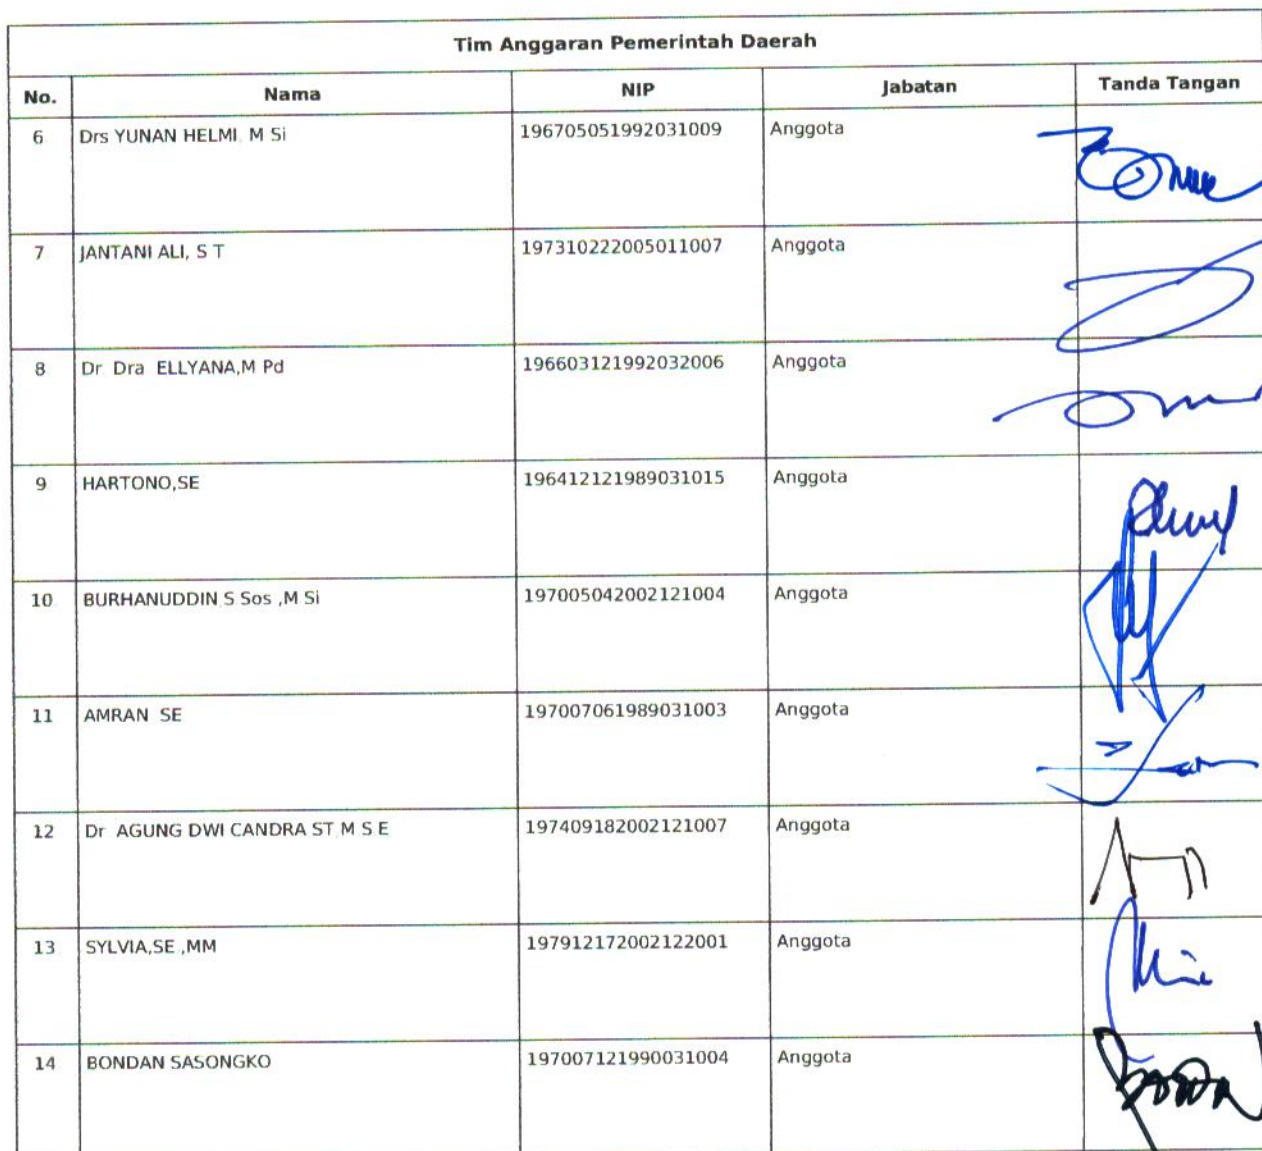 Tim Anggaran Pemerintah Daerah
No. Nama NIP Jabatan Tanda Tangan
6 Drs YUNAN HELMI M Si 196705051992031009 Anggota
7 JANTANI ALI, S T 197310222005011007 Anggota
8 Dr Dra ELLYANA,M Pd 196603121992032006 Anggota
9 HARTONO,SE 196412121989031015 Anggota
10 BURHANUDDIN S Sos ,M Si 197005042002121004 Anggota
11 AMRAN SE 197007061989031003 Anggota
12 Dr AGUNG DWI CANDRA ST M S E 197409182002121007 Anggota
13 SYLVIA,SE ,MM 197912172002122001 Anggota
14 BONDAN SASONGKO 197007121990031004 Anggota